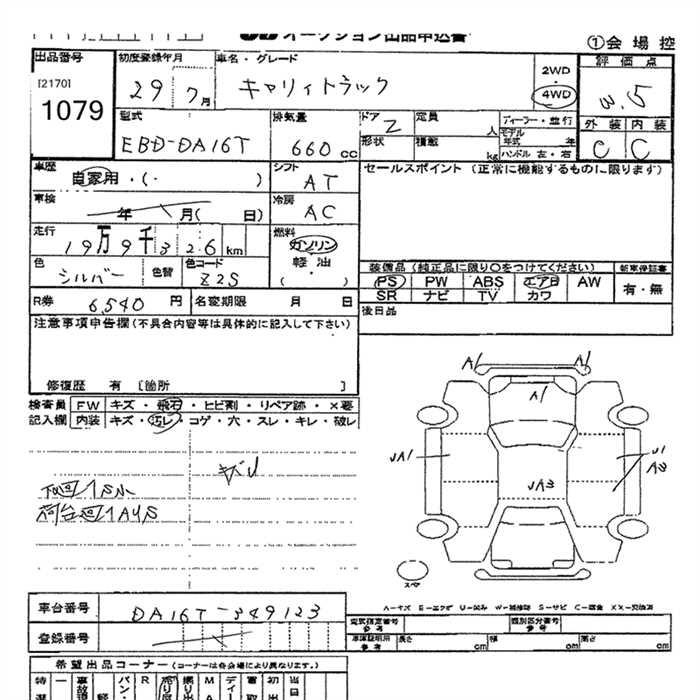 オークション出品申込書
①会場控
出品番号
[2170]
1079
初度登録年月
29 7月
車名・グレード
キャリィトラック
2WD
4WD
評価点
3.5
外装 内装
C C
型式
EBD-DA16T
排気量
660 cc
ドア 2
定員 人
形状
積載 kg
ディーラー・並行
モデル年式 年
ハンドル 左・右
車歴
自家用・(・ )
シフト
AT
セールスポイント (正常に機能するものに限ります)
車検
年 月( 日)
冷房
AC
走行
19万9千326km
燃料
ガソリン
軽油
( ・ )
色
シルバー
色替
色コード
Z2S
装備品 (純正品に限り○をつけてください)
新車保証書
PS PW ABS エアB AW
SR ナビ TV カワ
有・無
R券 6,540円
名変期限 月 日
後日品
注意事項申告欄(不具合内容等は具体的に記入して下さい)
修復歴 有 [箇所 ]
検査員記入欄
FW キズ・飛石・ヒビ割・リペア跡・×要
内装 キズ・汚レ・コゲ・穴・スレ・キレ・破レ
キバリ
下回り1S小
荷台廻り1AUS
A1 A1
A1
UA1
UA3
U1
A2
スペア
A-キズ E-エクボ U-凹み W-補修跡 S-サビ C-腐食 XX-交換済
車台番号
DA16T-349123
登録番号
型式指定番号
参考
類別区分番号
車庫証明用
参考
長さ cm
幅 cm
高さ cm
希望出品コーナー (コーナーは各会場により異なります。)